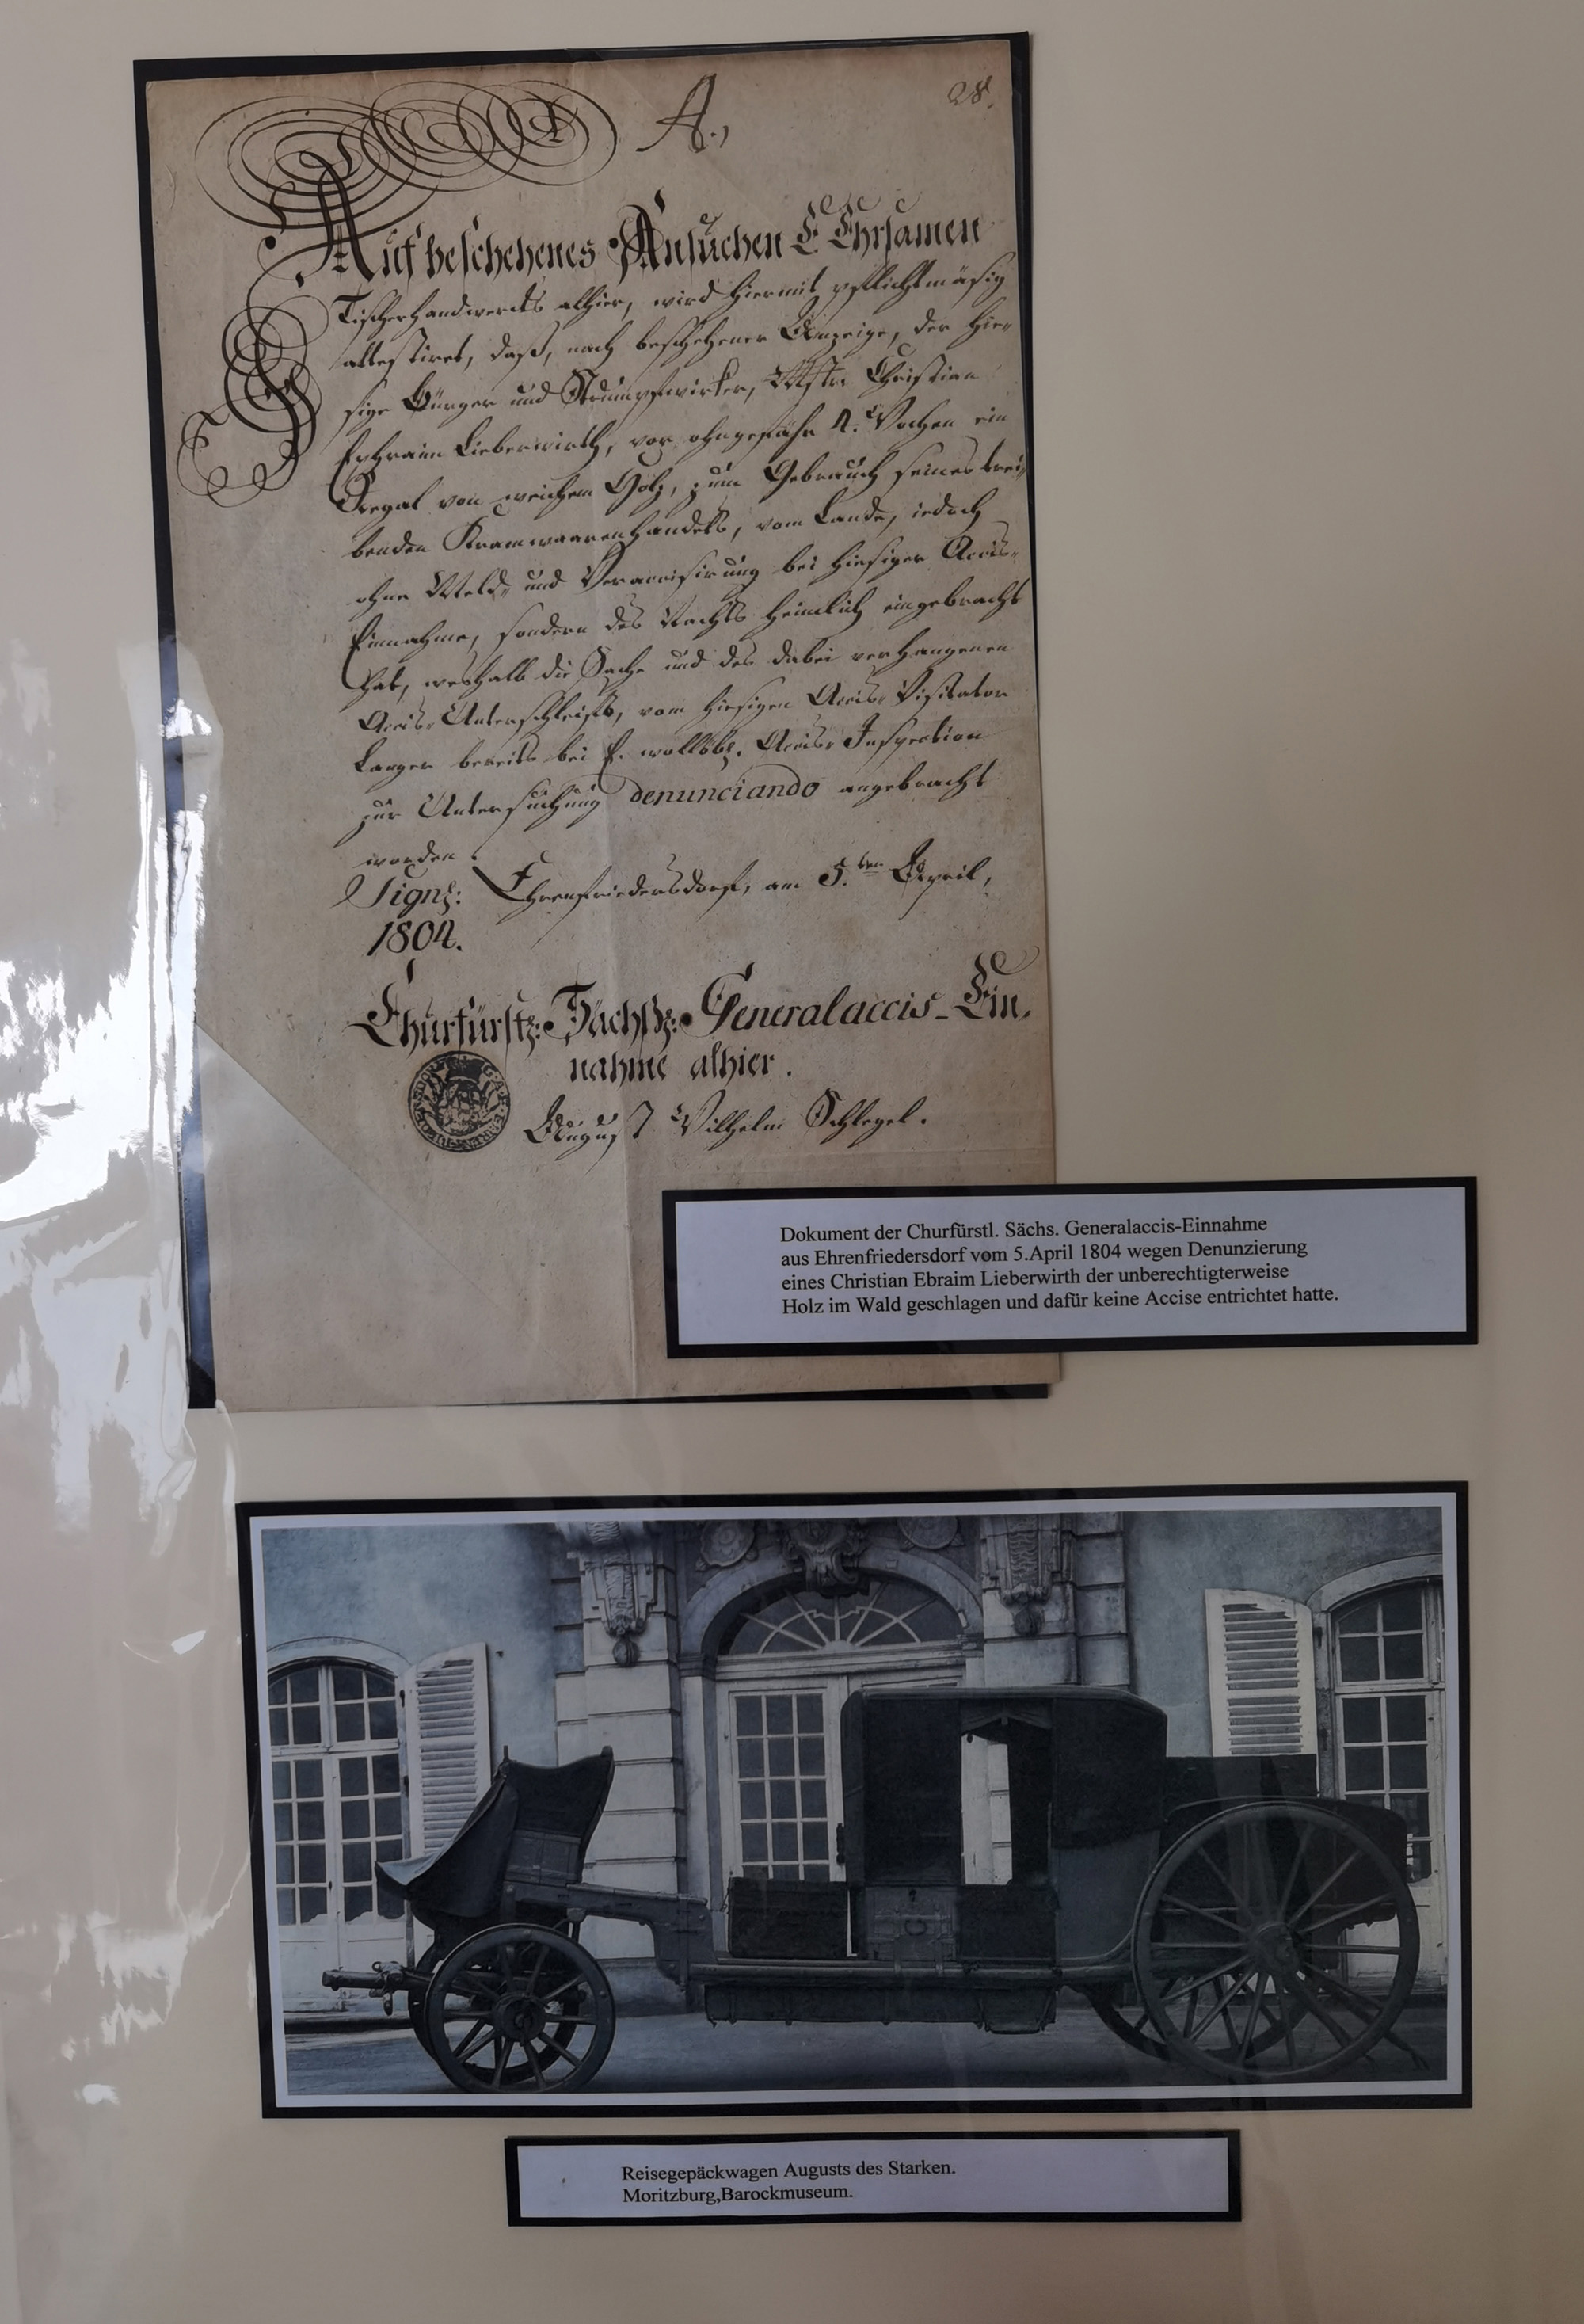 A.,
28.
Auf beschehenes Ansuchen E. Ehrsamen
Tischerhandwercks alhier, wird hiermit pflichtmäsig
attestiret, daß, nach beschehener Anzeige, der hie-
sige Bürger und Strumpfwirker, Mstr. Christian
Ephraim Lieberwirth, vor ohngefähr 4. Wochen ein
Regal von weichem Holz, zum Gebrauch seines trei-
benden Kramwaarenhandels, vom Lande, iedoch
ohne Meld- und Veraccisirung bei hiesiger Accis-
Einnahme, sondern des Nachts heimlich eingebracht
hat, weshalb die Sache und des dabei verhangenen
Accis-Unterschleifs, vom hiesigen Accis-Visitator
Langer bereits bei E. wollöbl. Accis-Inspection
zur Untersuchung denunciando angebracht
worden.
Signl: Ehrenfriedersdorf, am 5.ten April,
1804.
Churfürstl: Sächßl: Generalaccis-Ein-
nahme alhier.
August Wilhelm Schlegel.
Dokument der Churfürstl. Sächs. Generalaccis-Einnahme
aus Ehrenfriedersdorf vom 5.April 1804 wegen Denunzierung
eines Christian Ebraim Lieberwirth der unberechtigterweise
Holz im Wald geschlagen und dafür keine Accise entrichtet hatte.
Reisegepäckwagen Augusts des Starken.
Moritzburg,Barockmuseum.